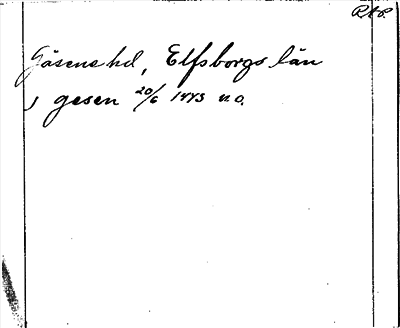 RAP.
Gäsene hd, Elfsborgs län
j gesen 20/6 1443 n.o.